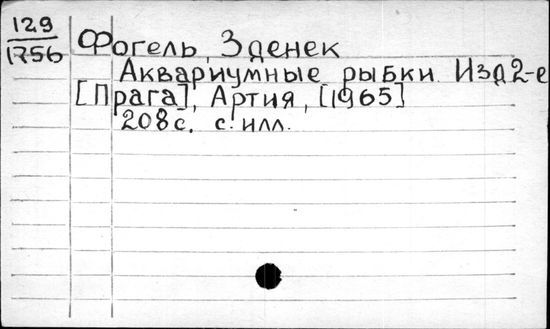 129
1756
Фогель, Зденек
Аквариумные рыбки. Изд 2-е
[Прага], Артия, [1965]
208 с. с илл.